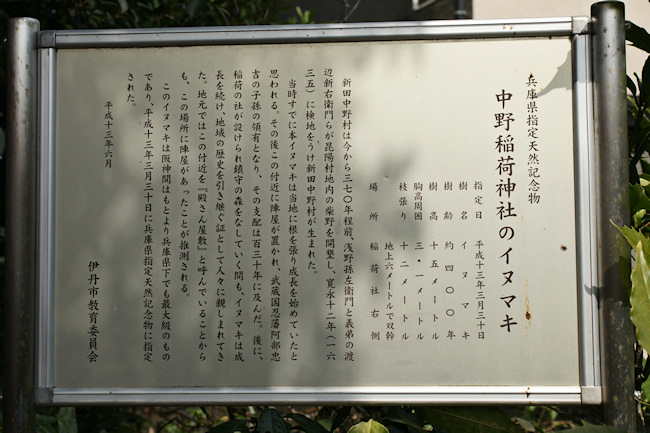 兵庫県指定天然記念物
中野稲荷神社のイヌマキ
指定日 平成十三年三月三十日
樹名 イヌマキ
樹齢 約四〇〇年
樹高 十五メートル
胸高周囲 三・一メートル
枝張り 十二メートル
地上六メートルで双幹
場所 稲荷社右側
新田中野村は今から三七〇年程前、浅野孫左衛門と義弟の渡
辺新右衛門らが昆陽村地内の柴野を開墾し、寛永十二年（一六
三五）に検地をうけ新田中野村が生まれた。
当時すでに本イヌマキは当地に根を張り成長を始めていたと
思われる。その後この付近に陣屋が置かれ、武蔵国忍藩阿部忠
吉の子孫の領有となり、その支配は百三十年に及んだ。後に、
稲荷の社が設けられ鎮守の森をなしていく間も、イヌマキは成
長を続け、地域の歴史を引き継ぐ証として人々に親しまれてき
た。地元ではこの付近を『殿さん屋敷』と呼んでいることから
も、この場所に陣屋があったことが推測される。
このイヌマキは阪神間はもとより兵庫県下でも最大級のもの
であり、平成十三年三月三十日に兵庫県指定天然記念物に指定
された。
平成十三年六月
伊丹市教育委員会